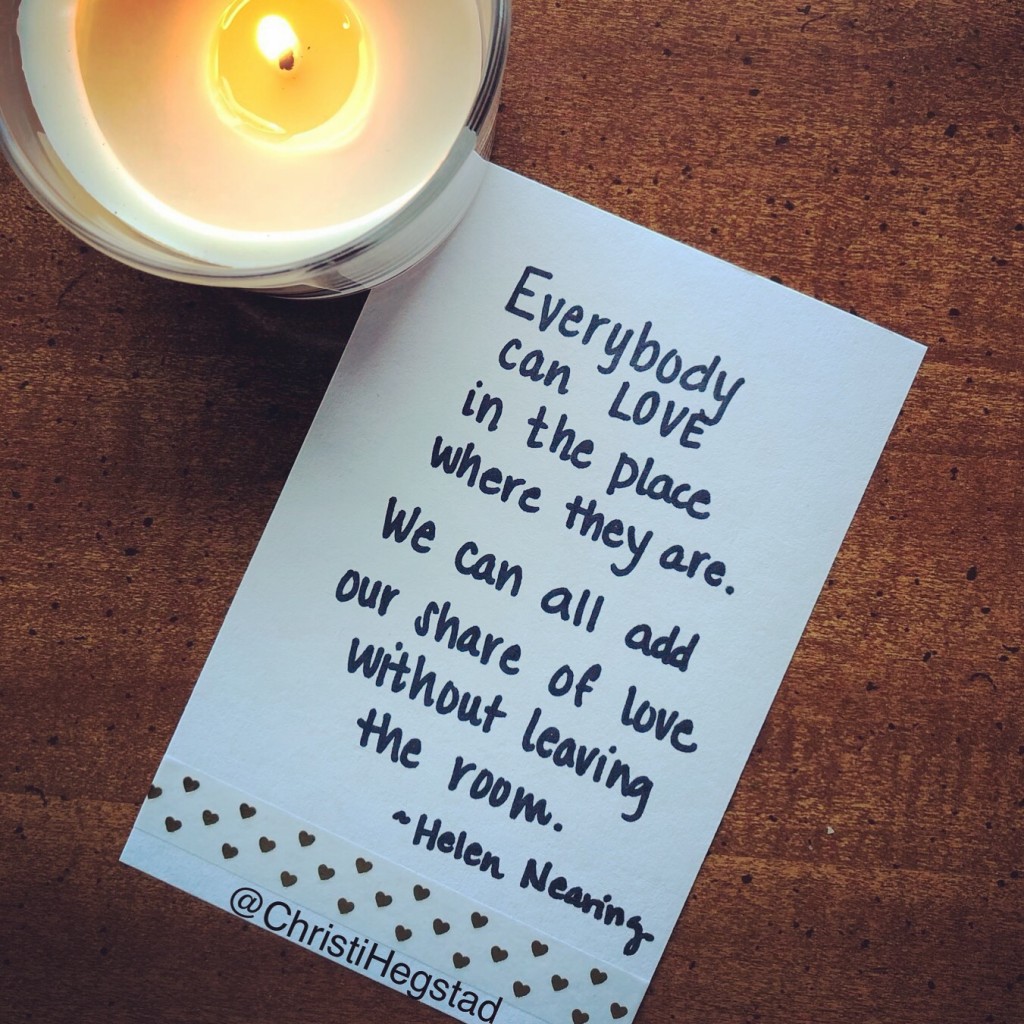 Everybody
can LOVE
in the place
where they are.
We can all add
our share of love
without leaving
the room.
~Helen Nearing
@ChristiHegstad